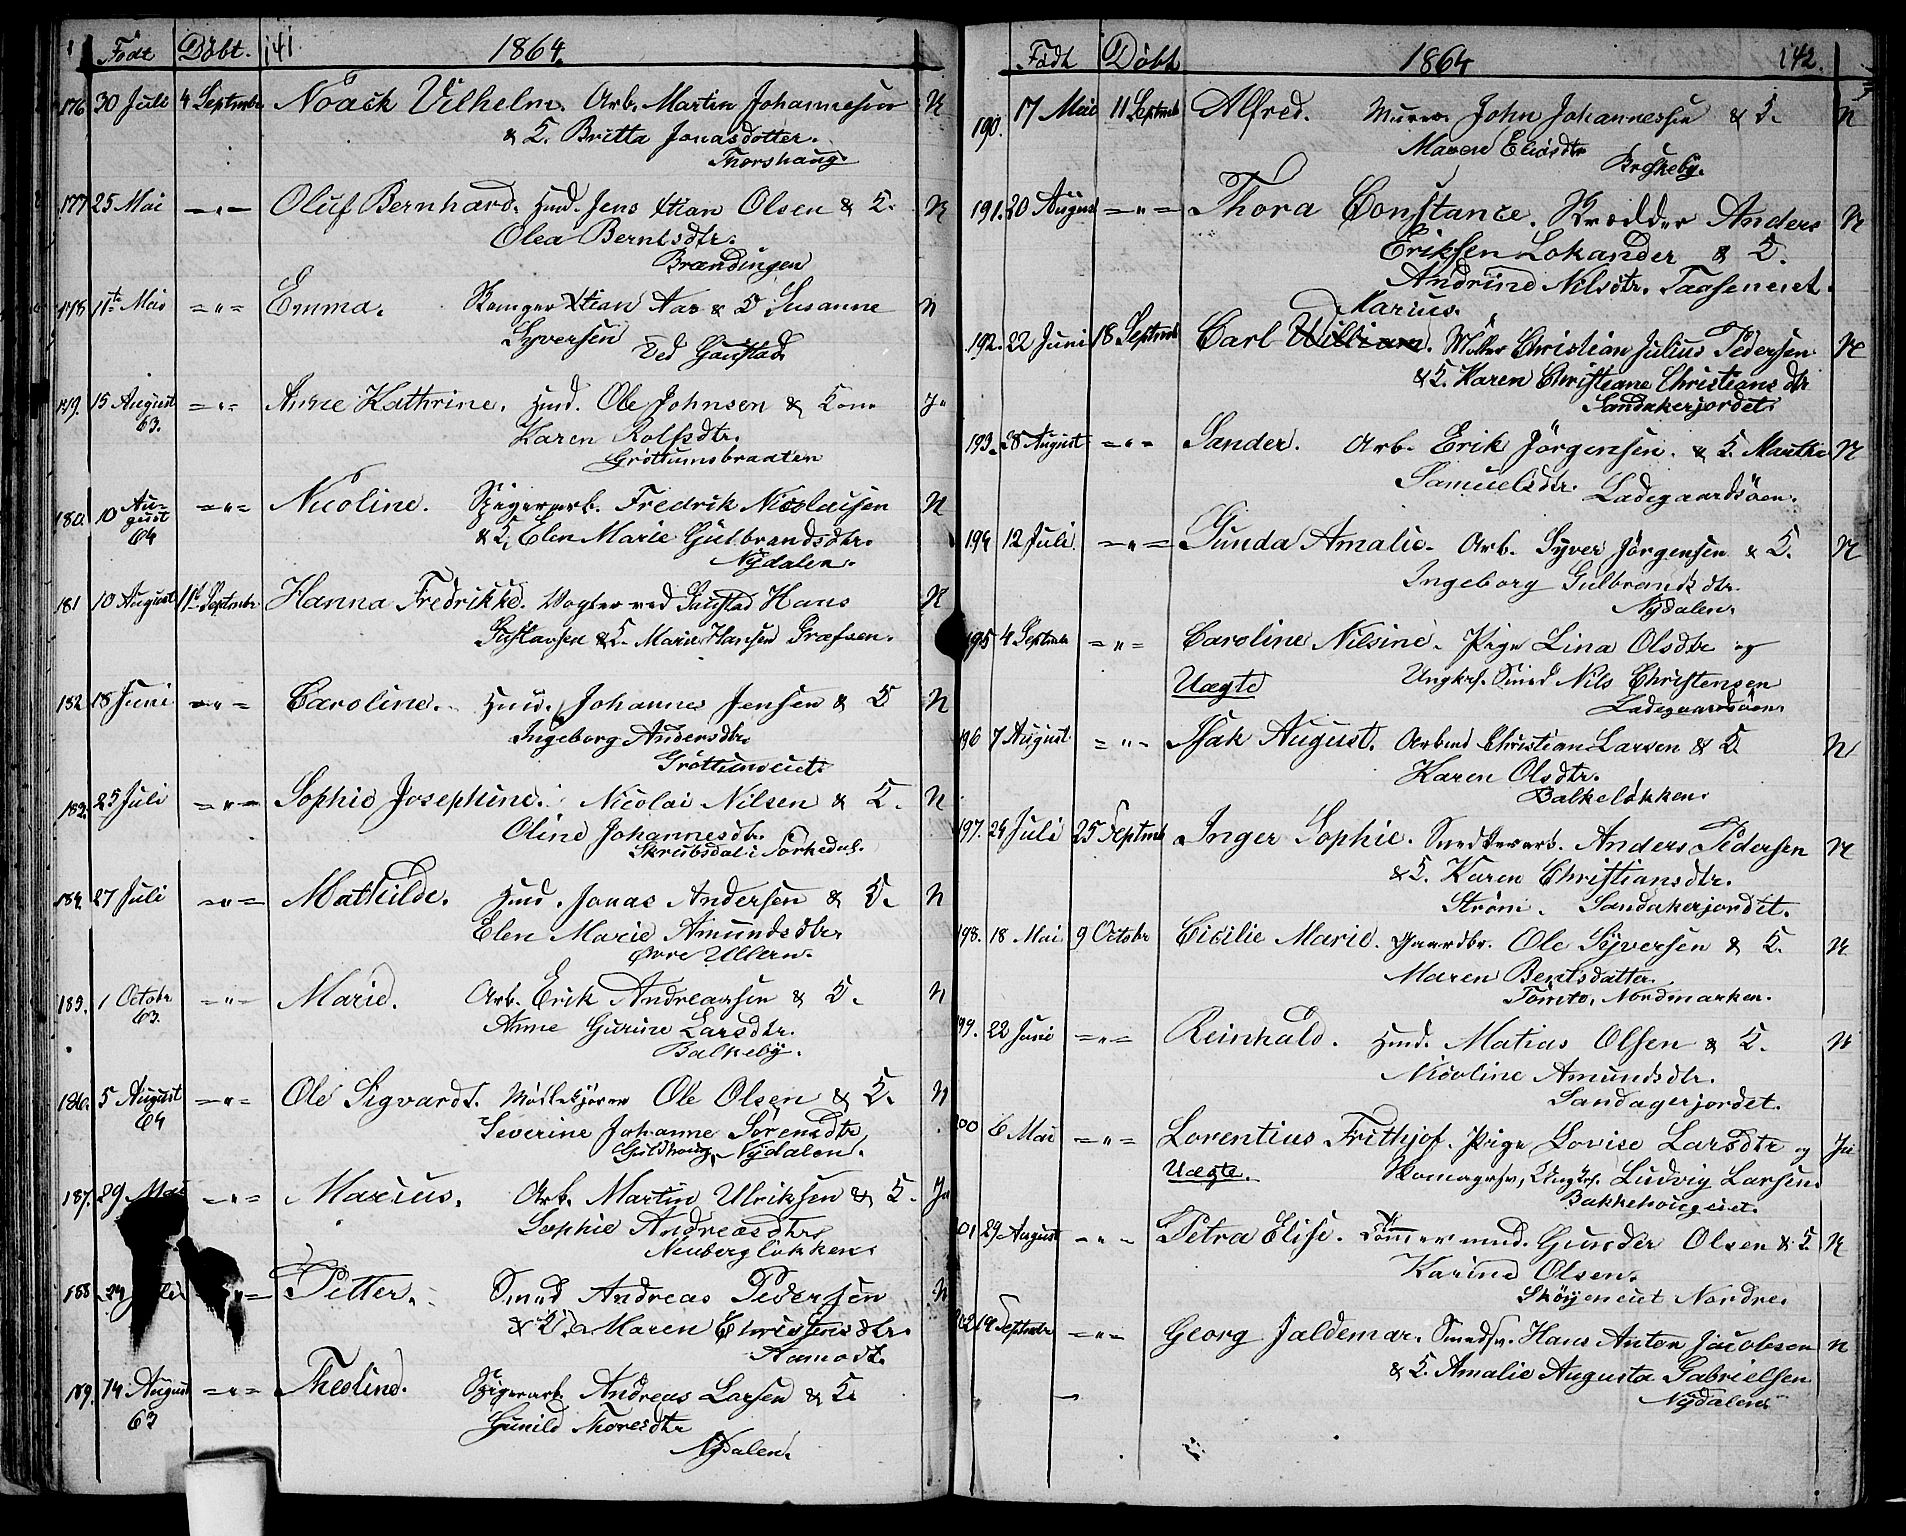 Födt Döbt. 141. 1864.
176 30 Juli 4 Septmbr Noack Vilhelm. Arb. Martin Johannesen N
& K. Britta Jonasdotter.
Thorshaug.
177 25 Mai —"— Oluf Bernhard. Husmd. Jens Xtian Olsen & K. N
Olea Berntsdtr.
Brændingen
178 11te Mai ="= Emma. Xtian Aas & K Susanne N
Syversen
Ved Gaustad.
179. 15 August ="= Anne Kathrine. Husmd. Ole Johnsen & Kone Ja
63.
Karen Rolfsdtr.
Gröttumsbraaten
180. 10 Au-
gust
64
="= Nicoline. Spigerarb. Fredrik Nicolaisen N
& K. Elen Marie Gulbrandsdtr.
Nydalen.
181 10 August 11te Septmbr Hanna Fredrikke. Vogter ved Gaustad Hans N
Gustavsen & K. Marie Hansen Græfsen.
182 18 Juni ="= Caroline. Husmd. Johannes Jensen & K N
Ingeborg Andersdtr.
Gröttumseiet.
183. 25 Juli ="= Sophie Josephine. Nicolai Nilsen & K. N
Oline Johannesdtr.
Skrubsdal i Sörkedal.
184. 27 Juli ="= Mathilde. Husmd. Jonas Andersen & K. N
Elen Marie Amundsdtr.
Övre Ullern.
185. 1 Octobr ="= Marie. Arb. Erik Andreassen & K. N
63.
Anne Gurine Larsdtr.
Balkeby.
186. 5 August ="= Ole Sigvardt. Möllekjörer Ole Olsen & K. N
64
Severine Johanne Sörensdtr.
Guldhaug, Nydalen.
187. 29 Mai ="= Marius. Arb. Martin Ulriksen & K. Ja
Sophie Andreasdtr.
Neuberglökken.
188 29 = Petter. Smed Andreas Pedersen N
& K. Maren Christensdtr.
Aamodt.
189. 14 August ="= Theoline. Spigerarb. Andreas Larsen & K.
63
Gunild Thoresdtr
Nydalen.
Födt Döbt 1864 142.
190. 17 Mai 11 Septmbr Alfred. Murer John Johannessen & K. N
Maren Eliasdtr
Briskeby.
191. 20 August ="= Thora Constance. Skrædder Anders N
Eriksen Lokander & K.
Andrine Nilsdtr. Taaseneiet.
Marius.
192. 22 Juni 18 Septmbr Carl William. Möller Christian Julius Pedersen N
& K. Karen Christiane Christiansdtr
Sandakerjordet.
193. 28 August ="= Sander. Arb. Erik Jörgensen. & K. Marthe N
Samuelsdtr. Ladegaardsöen.
194 12 Juli. ="= Gunda Amalie. Arb. Syver Jörgensen & K. N
Ingeborg Gulbrandsdtr.
Nydalen.
195 4 Septmbr ="= Caroline Nilsine. Pige Lina Olsdtr og
Uægte Ungkrl. Smed Nils Christensen
Ladegaardsöen.
196 7 August ="= Isak August. Arbmd Christian Larsen & K N
Karen Olsdtr.
Balkelökken.
197. 24 Juli 25 Septmbr Inger Sophie. Snedkerarb. Anders Pedersen N
& K. Karen Christiansdtr.
Ström. Sandakerjordet.
198. 18 Mai 9 Octobr Cicilie Marie. Gaardbr. Ole Syversen & K. N
Maren Bentsdatter.
Tömte, Nordmarken.
199. 22 Juni ="= Reinhald. Husmd. Matias Olsen & K. N
Nicoline Amundsdtr.
Sandagerjordet.
200 6 Mai ="= Lorentius Frithjof. Pige Lovise Larsdtr og Ja
Uægte. Skomagersv, Ungkrl. Ludvig Larsen.
Bakkehougeiet.
201 29 August ="= Petra Elise. Tömmermd. Gunder Olsen & K N
Karine Olsen.
Sköyeneiet Nordre.
202 19 Septmbr ="= Georg Jaldemar. Smedsv. Hans Anton Jacobsen N
& K. Amalie Augusta Gabrielsen
Nydalen.